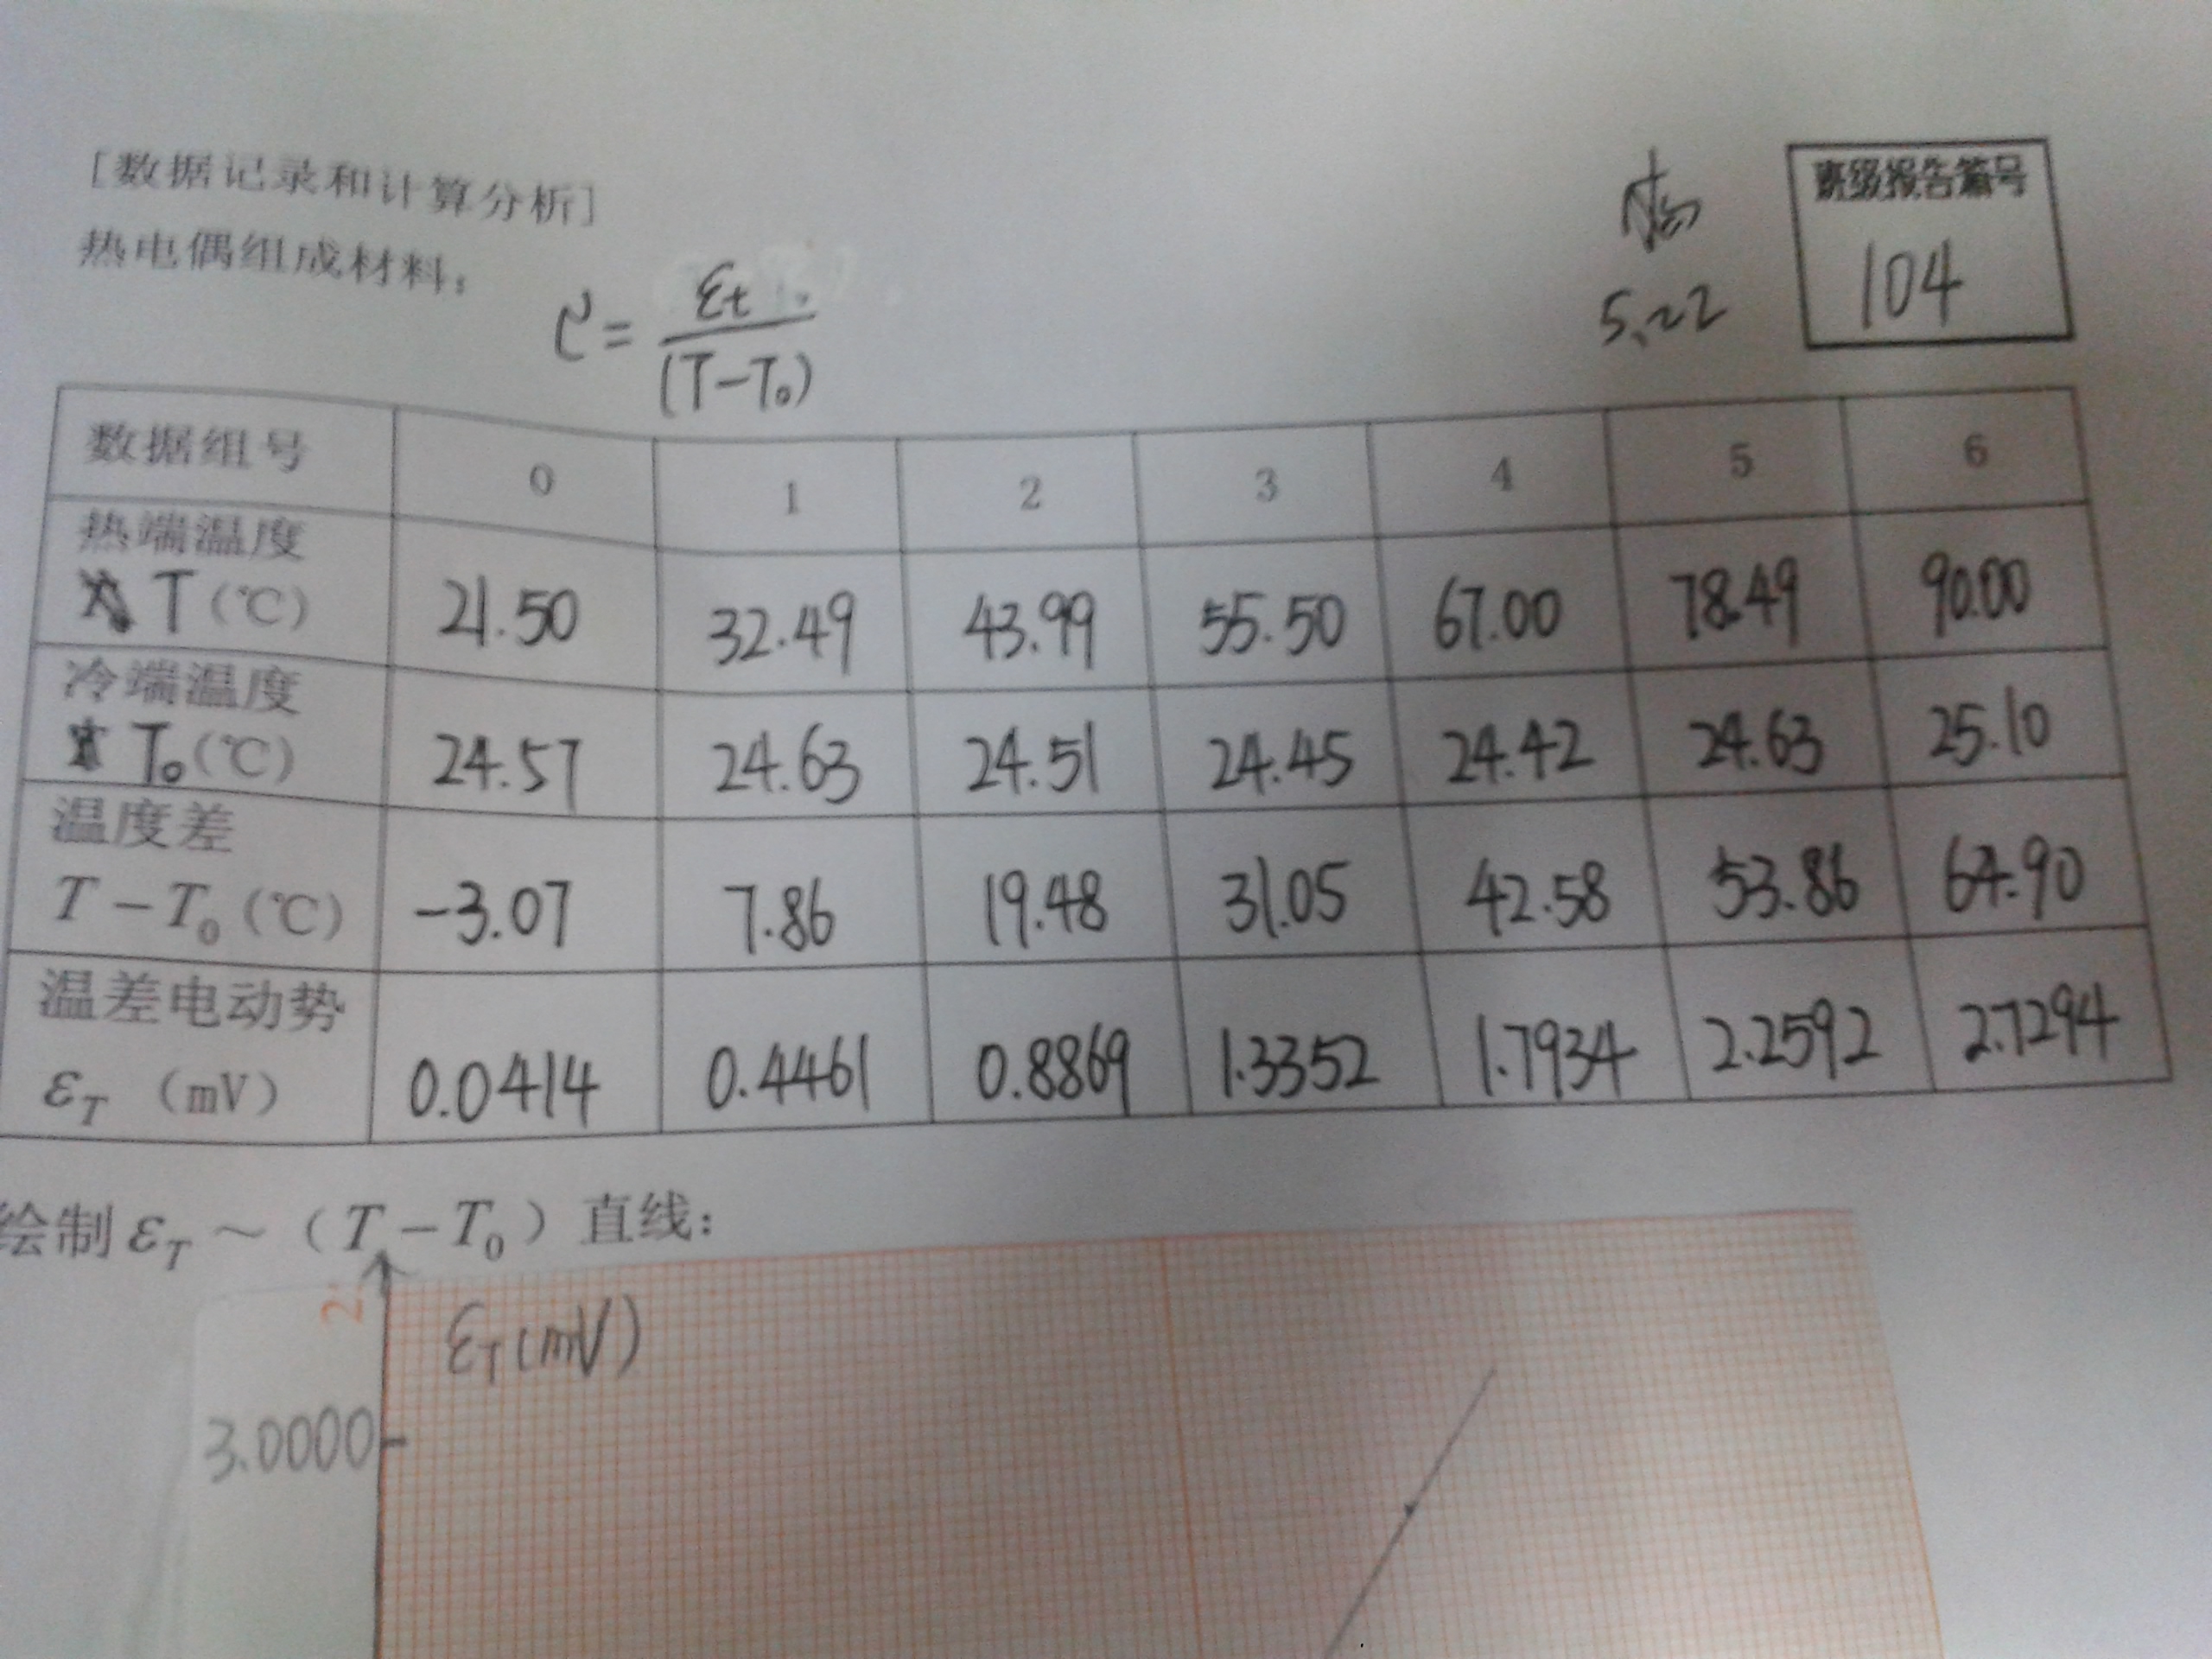 [数据记录和计算分析]
班级报告编号
104
5.22
热电偶组成材料:
C = εt / (T-T₀)
数据组号 0 1 2 3 4 5 6
热端温度
T (℃) 21.50 32.49 43.99 55.50 67.00 78.49 90.00
冷端温度
T₀ (℃) 24.57 24.63 24.51 24.45 24.42 24.63 25.10
温度差
T-T₀ (℃) -3.07 7.86 19.48 31.05 42.58 53.86 64.90
温差电动势
εT (mV) 0.0414 0.4461 0.8869 1.3352 1.7934 2.2592 2.7294
绘制 εT ~ (T-T₀) 直线:
εT(mV)
3.0000